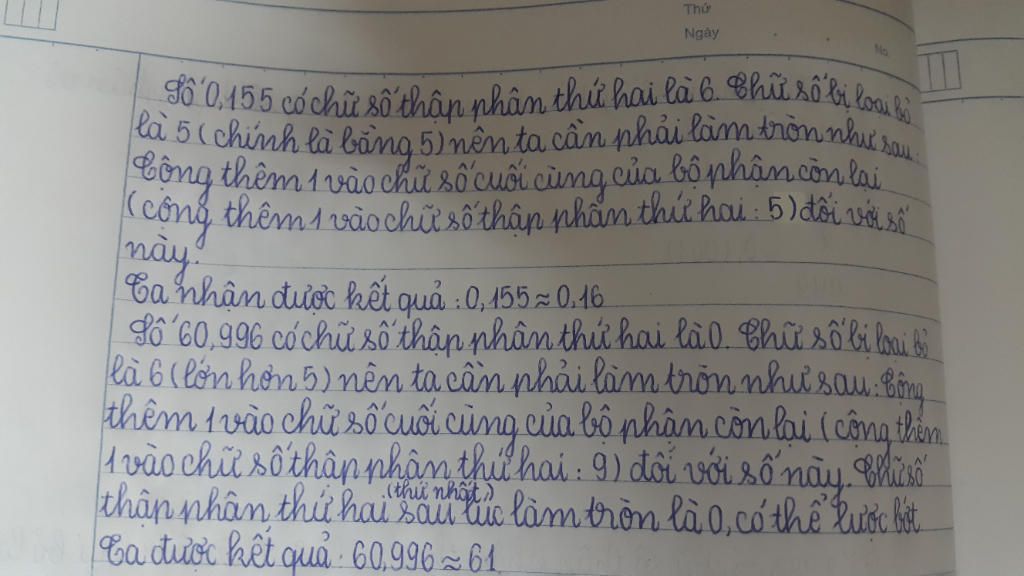 Thứ
Ngày
No
Số 0,155 có chữ số thập phân thứ hai là 6. Chữ số bị loại bỏ
là 5 (chính là bằng 5) nên ta cần phải làm tròn như sau:
Cộng thêm 1 vào chữ số cuối cùng của bộ phận còn lại
(cộng thêm 1 vào chữ số thập phân thứ hai: 5) đối với số
này.
Ta nhận được kết quả: 0,155 ≈ 0,16
Số 60,996 có chữ số thập phân thứ hai là 0. Chữ số bị loại bỏ
là 6 (lớn hơn 5) nên ta cần phải làm tròn như sau: Cộng
thêm 1 vào chữ số cuối cùng của bộ phận còn lại (cộng thêm
1 vào chữ số thập phân thứ hai: 9) đối với số này. Chữ số
(thứ nhất,)
thập phân thứ hai sau lúc làm tròn là 0, có thể lược bớt
Ta được kết quả: 60,996 ≈ 61